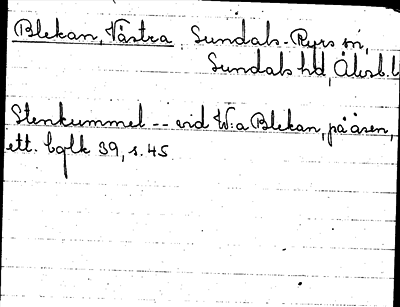 Blekan, Västra Sundals-Ryrs sn,
Sundals hd, Älvsb. l
Stenkummel -- vid V:a Blekan, på åsen,
ett. bglk 39, s. 45